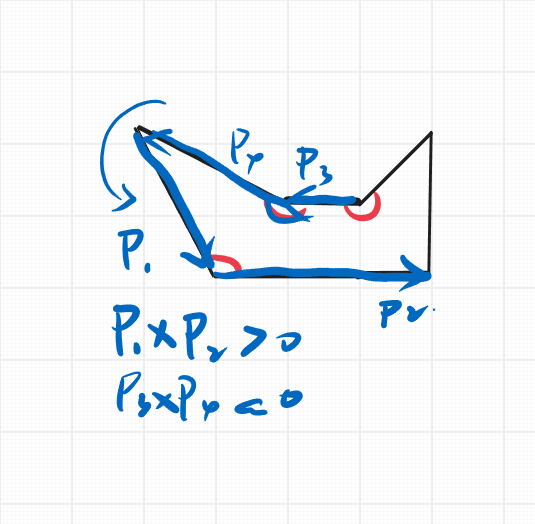 P4
P3
P1
P2.
P1×P2>0
P3×P4<0